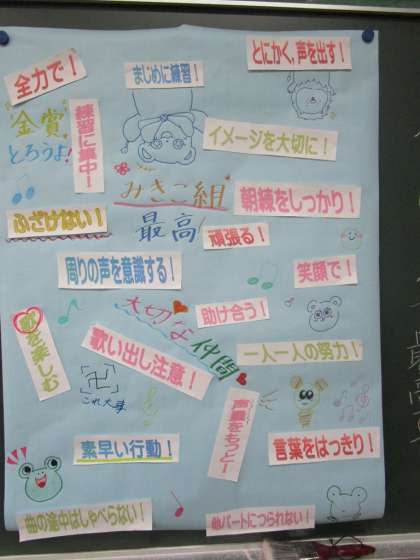 とにかく、声を出す！
全力で！
まじめに練習！
金賞
とろうよ！
練習に集中！
イメージを大切に！
みきこ組
最高
朝練をしっかり！
ふざけない！
頑張る！
周りの声を意識する！
笑顔で！
大切な仲間
助け合う！
歌を楽しむ
歌い出し注意！
一人一人の努力！
卍
これ大事
声量をもっとー！
素早い行動！
言葉をはっきり！
曲の途中はしゃべらない！
他パートにつられない！